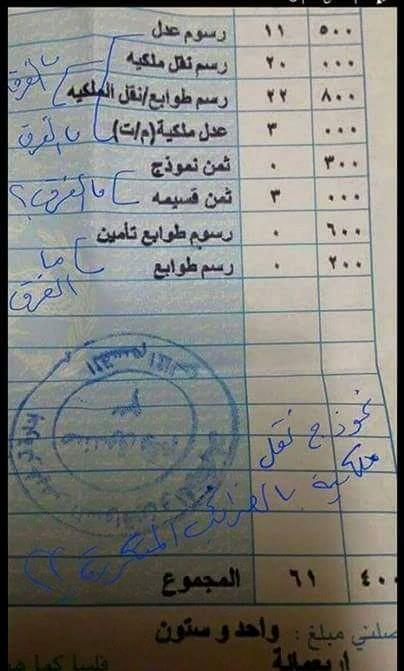 رسوم عدل ١١ ٥٠٠
رسم نقل ملكيه ٢٠ ٠٠٠
رسم طوابع/نقل الملكيه ٢٢ ٨٠٠
ما الفرق
عدل ملكية(م/ت) ٣ ٠٠٠
ما الفرق
ثمن نموذج ٠ ٣٠٠
ثمن قسيمه ٣ ٠٠٠
ما الفرق؟
رسوم طوابع تأمين ٠ ٦٠٠
رسم طوابع ٠ ٢٠٠
ما
الفرق
نموذج نقل
ملكية بالضرائب المتكررة
المجموع ٦١ ٤٠٠
مبلغ : واحد و ستون